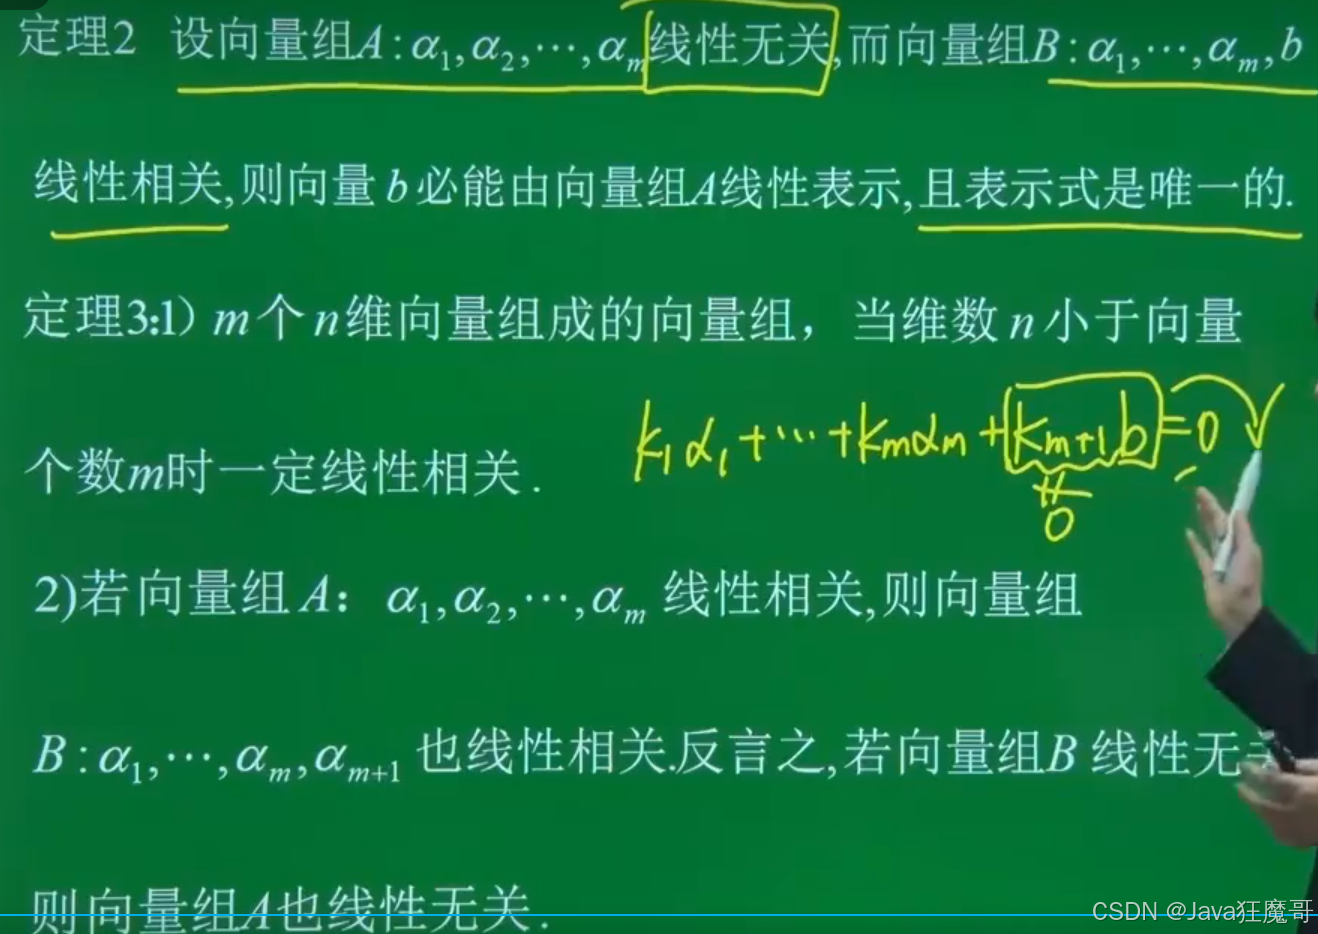 定理2 设向量组A:α₁,α₂,⋯,αₘ线性无关,而向量组B:α₁,⋯,αₘ,b
线性相关,则向量b必能由向量组A线性表示,且表示式是唯一的.
定理3:1) m个n维向量组成的向量组，当维数n小于向量
k₁α₁+⋯+kₘαₘ+kₘ₊₁b=0
0
个数m时一定线性相关.
2)若向量组A：α₁,α₂,⋯,αₘ 线性相关,则向量组
B:α₁,⋯,αₘ,αₘ₊₁ 也线性相关.反言之,若向量组B线性无
则向量组A也线性无关.
CSDN @Java狂魔哥